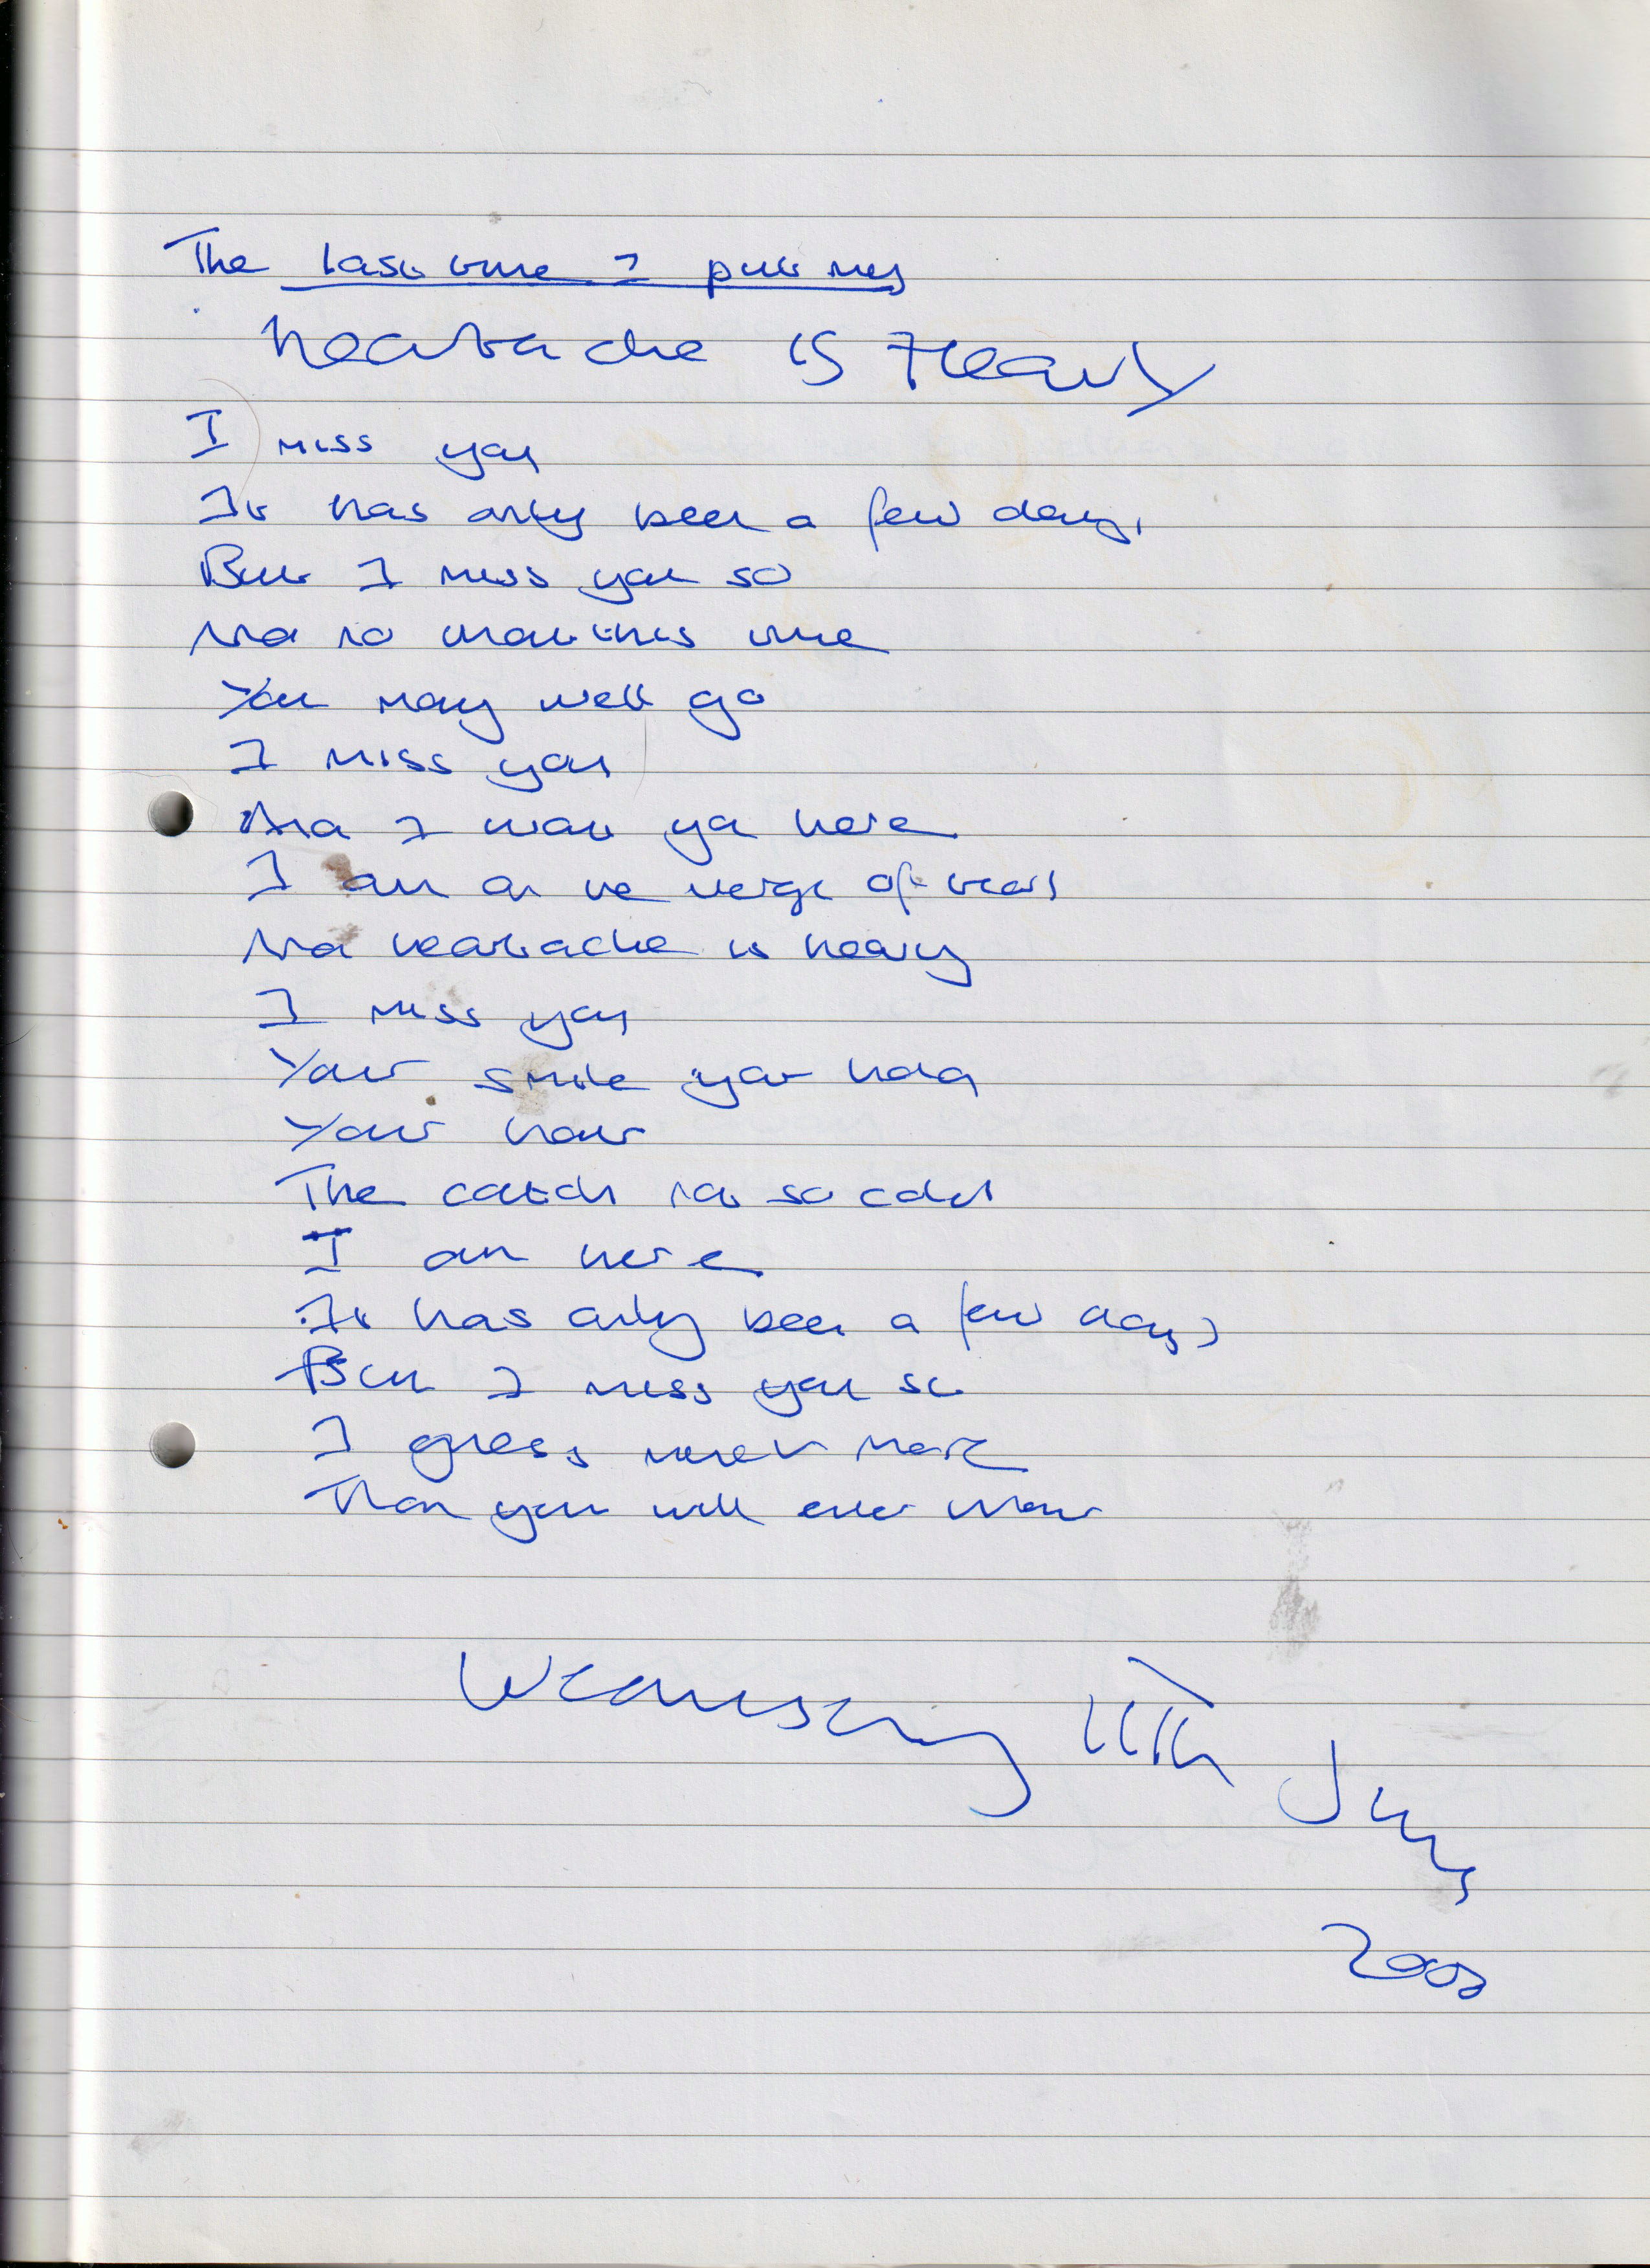 The last time I put my
heartache is Heavy
I miss you
It has only been a few days,
But I miss you so
And to think this time
You may well go
I miss you
And I want you here
I am on the verge of tears
And heartache is heavy
I miss you
Your smile your hold
Your hair
The couch not so cold
I am here
It has only been a few days
But I miss you so
I guess much more
Than you will ever know
Wednesday 11th June
2003